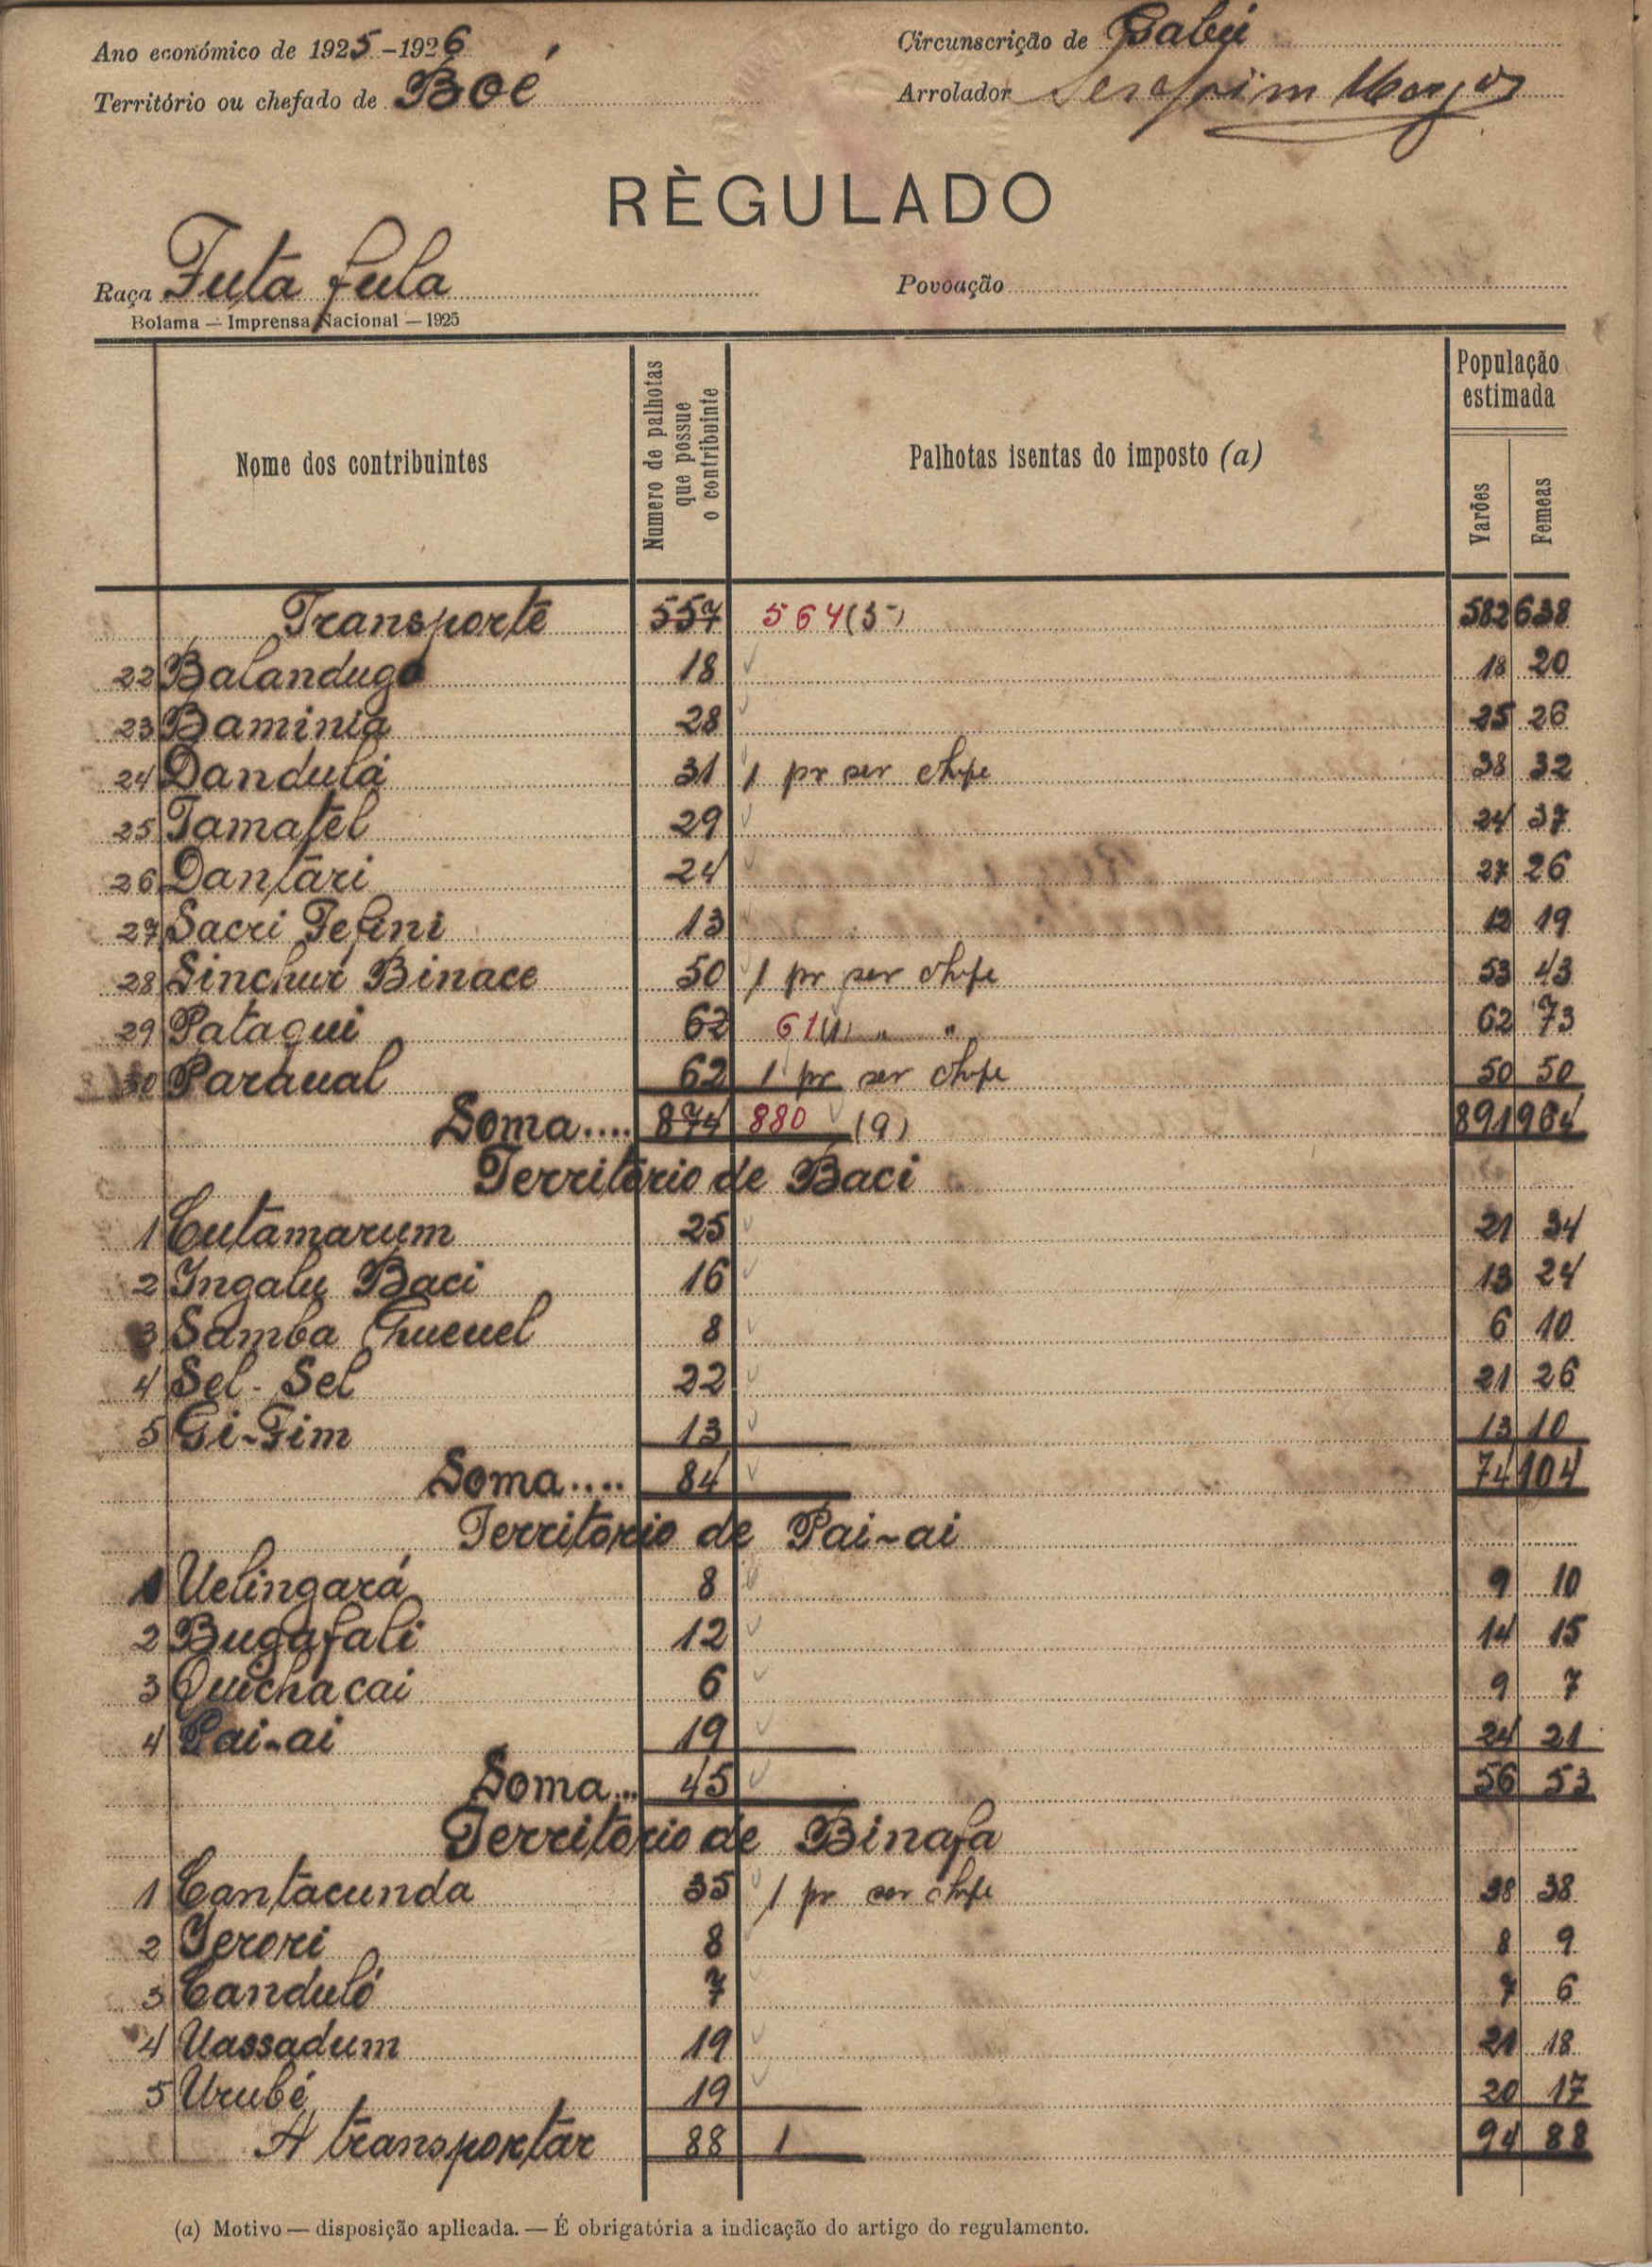 Ano económico de 1925-1926
Circunscrição de Gabú
Território ou chefado de Boé
Arrolador Serafim
RÈGULADO
Raça Futa fula
Povoação
Bolama — Imprensa Nacional — 1925
Nome dos contribuintes
Numero de palhotas que possue o contribuinte
Palhotas isentas do imposto (a)
População estimada
Varões
Femeas
Transporte 557 564 (5) 582 638
22 Balandugo 18 18 20
23 Baminia 28 25 26
24 Dandulá 31 1 pr ser chefe 38 32
25 Tamatel 29 24 37
26 Dantari 24 27 26
27 Sacri Tefini 13 12 19
28 Sinchuri Binace 50 1 pr ser chefe 53 43
29 Pataqui 62 61 (1) " " 62 73
30 Paraual 62 1 pr ser chefe 50 50
Soma.... 874 880 (9) 891 964
Território de Baci
1 Cutamarum 25 21 34
2 Ingalu Baci 16 13 24
3 Samba Chueuel 8 6 10
4 Sel-Sel 22 21 26
5 Gi-Fim 13 13 10
Soma.... 84 74 104
Território de Pai-ai
1 Uelingará 8 9 10
2 Bugafali 12 14 15
3 Quichacai 6 9 7
4 Pai-ai 19 24 21
Soma... 45 56 53
Território de Binafa
1 Cantacunda 35 1 pr ser chefe 38 38
2 Jerori 8 8 9
3 Canduló 7 7 6
4 Uassadum 19 21 18
5 Urubé 19 20 17
A transportar 88 1 94 88
(a) Motivo — disposição aplicada. — É obrigatória a indicação do artigo do regulamento.